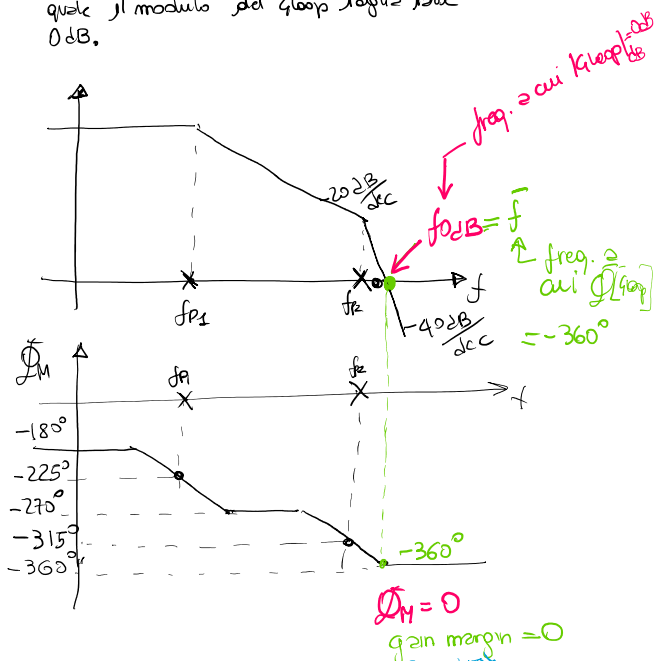 quale il modulo del Gloop
0dB.
freq. a cui |Gloop|dB=0dB
-20dB/dec
f0dB = f̄
freq. a
cui Φ[Gloop]
= -360°
fP1
fP2
f
-40dB/dec
ΦM
fP1
fP2
f
-180°
-225°
-270°
-315°
-360°
-360°
ΦM = 0
gain margin = 0